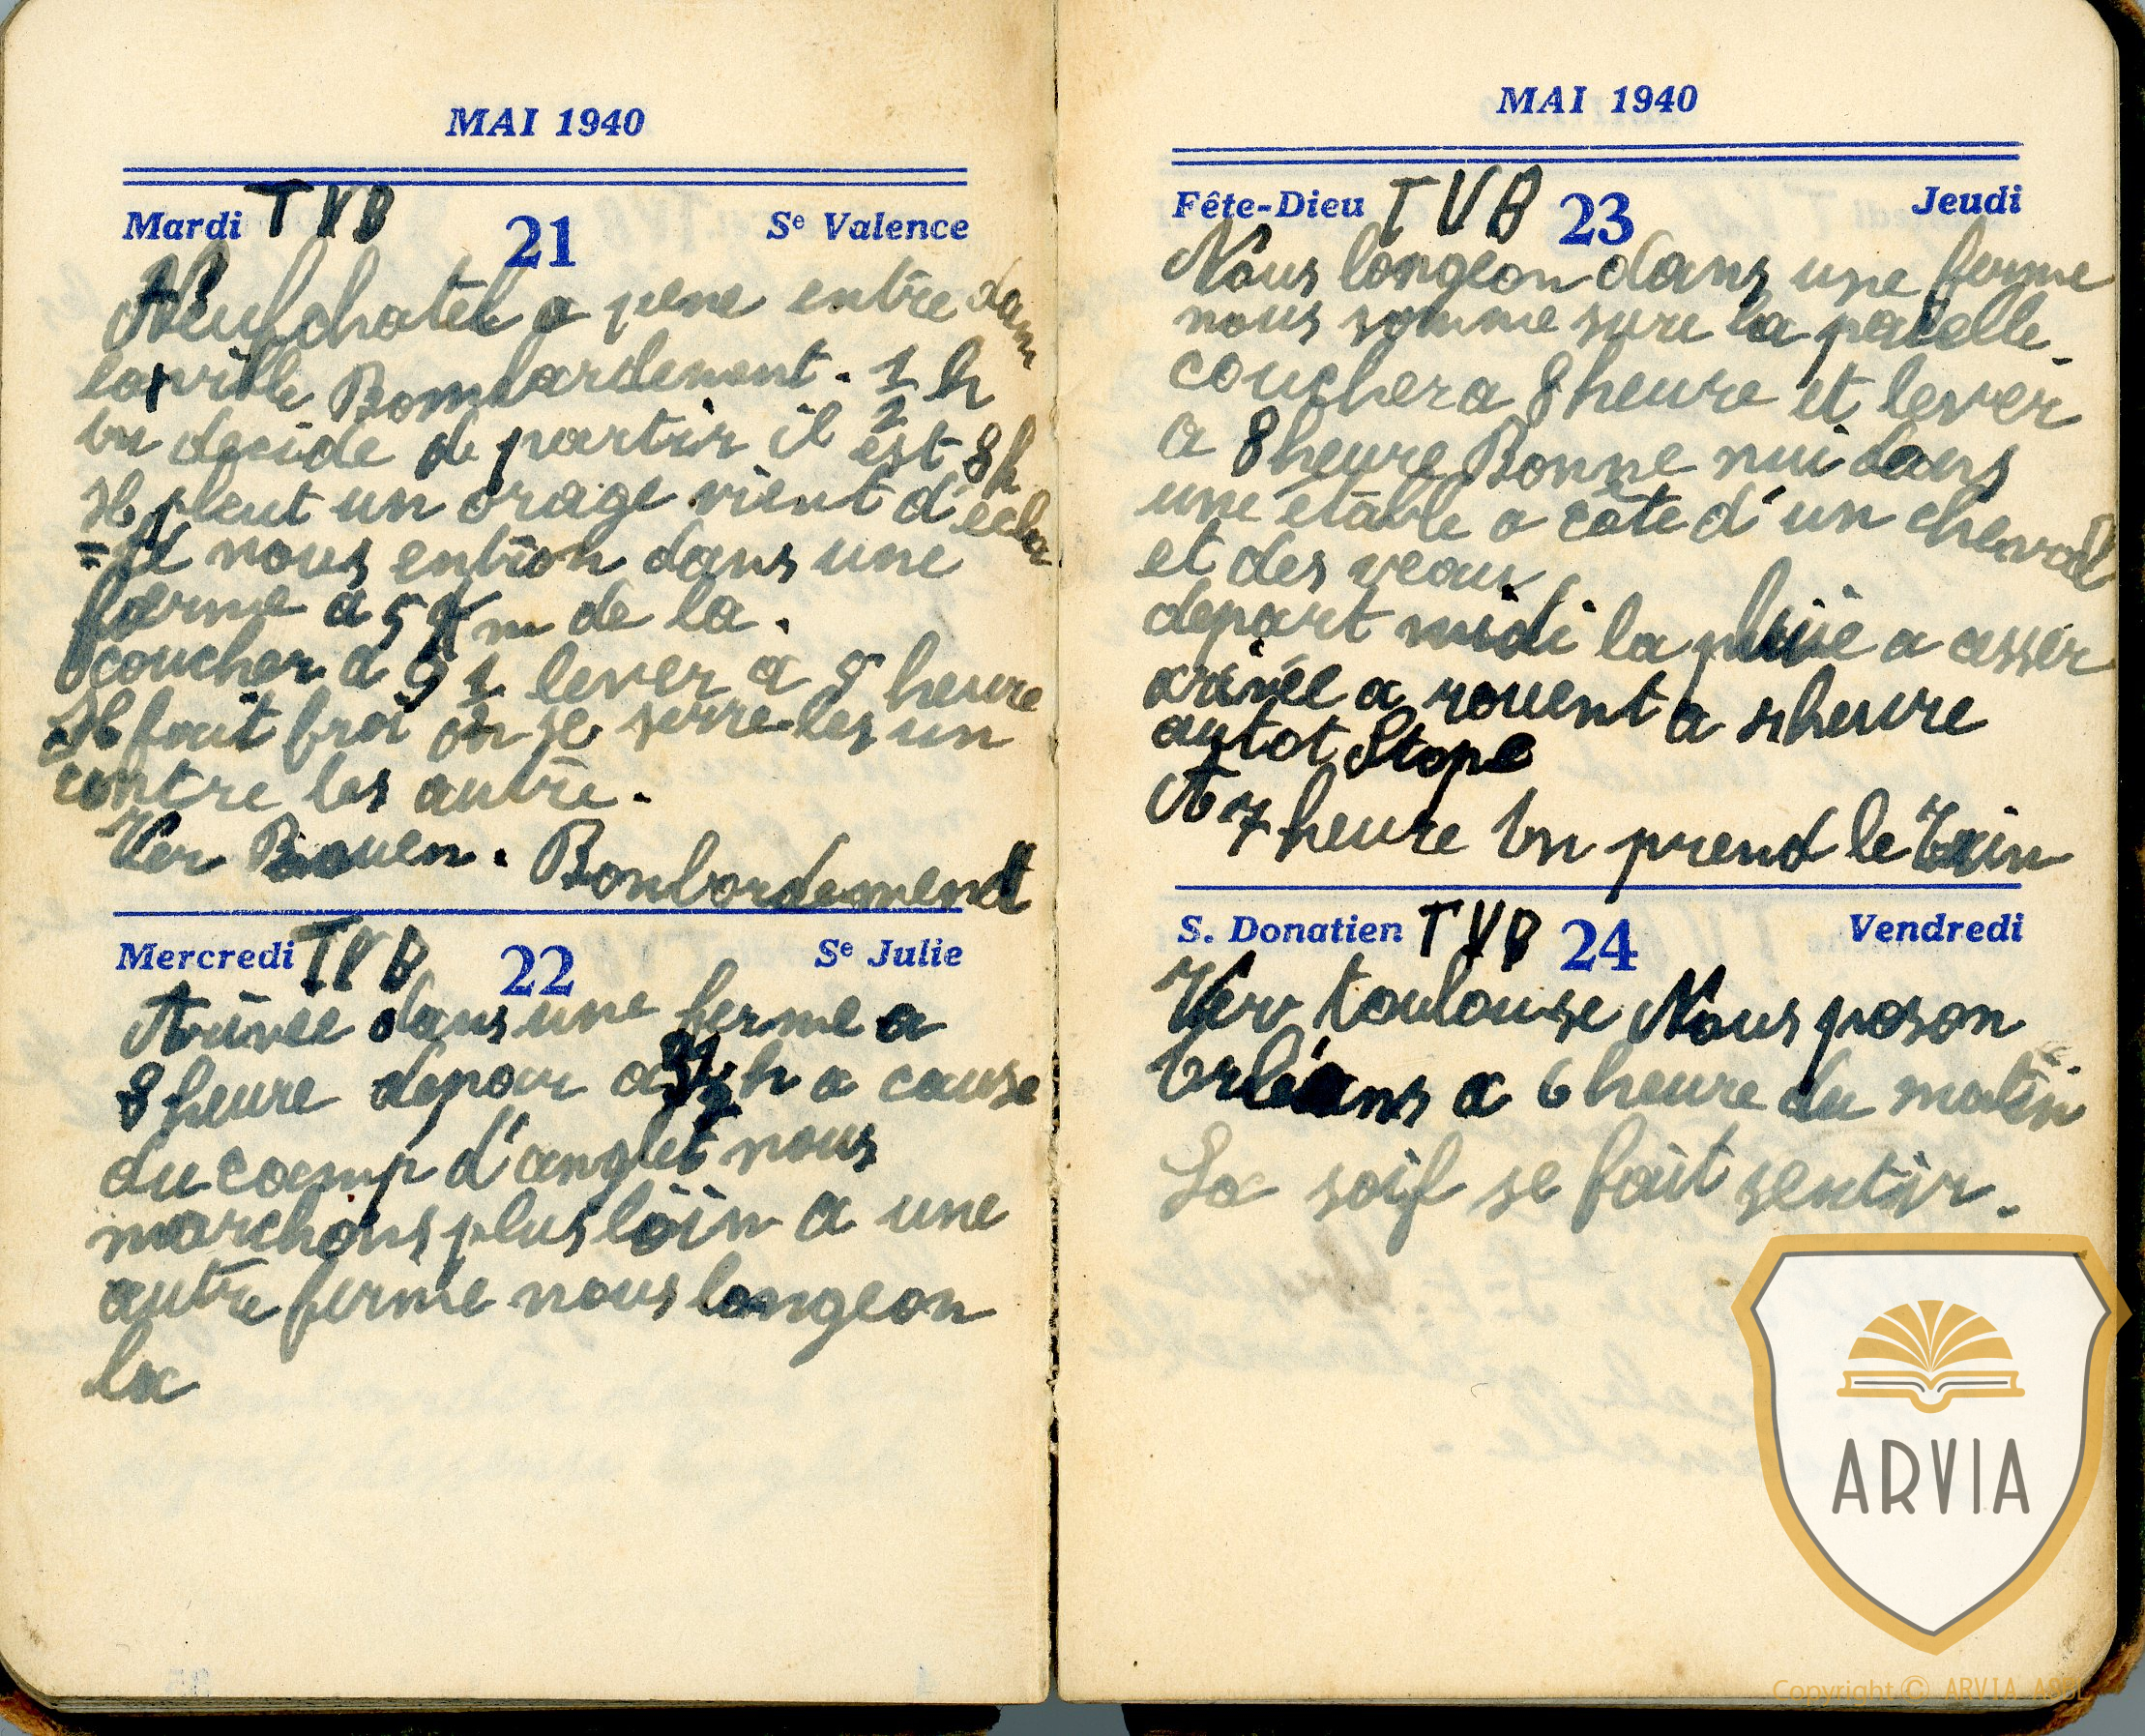 MAI 1940
Mardi TVB 21 Se Valence
Neufchatel a pene entre dans
la ville Bombardement. 1/2 h
on decide de partir il est 8h
Il pleut un orage vient d'ecla
=té nous entron dans une
ferme a 5 Km de la.
coucher a 9 1 lever a 5 heure
Il fait froi on se serre les un
contre les autre.
Ver Rouen. Bonbordement
Mercredi TVB 22 Se Julie
Arivée dans une ferme a
8 heure depar a h a cause
du camp d'anglet nous
marchons plus loin a une
autre ferme nous longeon
la
MAI 1940
Fête-Dieu TVB 23 Jeudi
Nous longeon dans une ferme
nous somme sure la paielle
coucher a 8 heure et lever
a 8 heure Bonne nui dans
une étable a côte d'un cheval
et des veaux,
depart midi la pluie a cesser
arivée a rouent a heure
autot Stope
A 7 heure on prend le train
S. Donatien TVB 24 Vendredi
Ver toulouse Nous poson
Orléans a 6 heure du matin
La soif se fait sentir.
ARVIA
Copyright © ARVIA ASBL